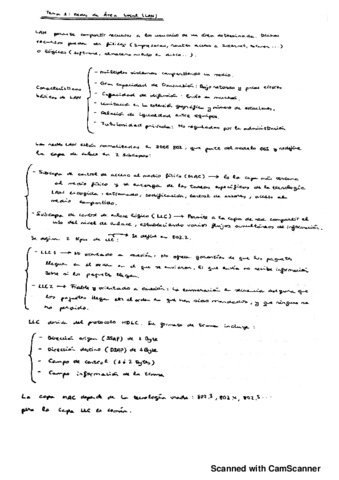 Tema 1: Redes de Área Local (LAN)
LAN permite compartir recursos a los usuarios de un área determinada. Dichos
recursos pueden ser físicos (impresoras, acceso a Internet, ...)
o lógicos (software, ...).
- Múltiples sistemas compartiendo un medio.
- Gran capacidad de transmisión: Bajo retardo y pocos errores
Características - Capacidad de difusión: Envío a muchos.
básicas de LAN - Limitación en la extensión geográfica y número de estaciones.
- Relación de igualdad entre equipos.
- Titularidad privada: No reguladas por la administración
Las redes LAN están normalizadas en IEEE 802, que parte del modelo OSI y redefine
la capa de enlace en 2 subcapas:
- Subcapa de control de acceso al medio físico (MAC) → Es la capa más cercana
al medio físico y se encarga de las tareas específicas de la tecnología
LAN escogida: entramado, codificación, control de errores, acceso al
medio compartido.
- Subcapa de control de enlace lógico (LLC) → Permite a la capa de red compartir el
uso del nivel de enlace, estableciendo varios flujos simultáneos de información.
→ Se define en 802.2.
Se definen 2 tipos de LLC:
- LLC1 → No orientado a conexión: No ofrece garantías de que los paquetes
lleguen en el orden en el que se enviaron, el que envía no recibe información
sobre si los paquetes llegan.
- LLC2 → Fiable y orientado a conexión: La numeración en secuencia asegura que
los paquetes llegan en el orden en que han sido mandados, y que ninguno se
ha perdido.
LLC deriva del protocolo HDLC. Su formato de trama incluye:
- Dirección origen (SSAP) de 1 Byte
- Dirección destino (DSAP) de 1 Byte
- Campo de control (1 ó 2 Bytes)
- Campo información de la trama
La capa MAC depende de la tecnología usada: 802.3, 802.11, 802.5...
pero la capa LLC es común.
Scanned with CamScanner